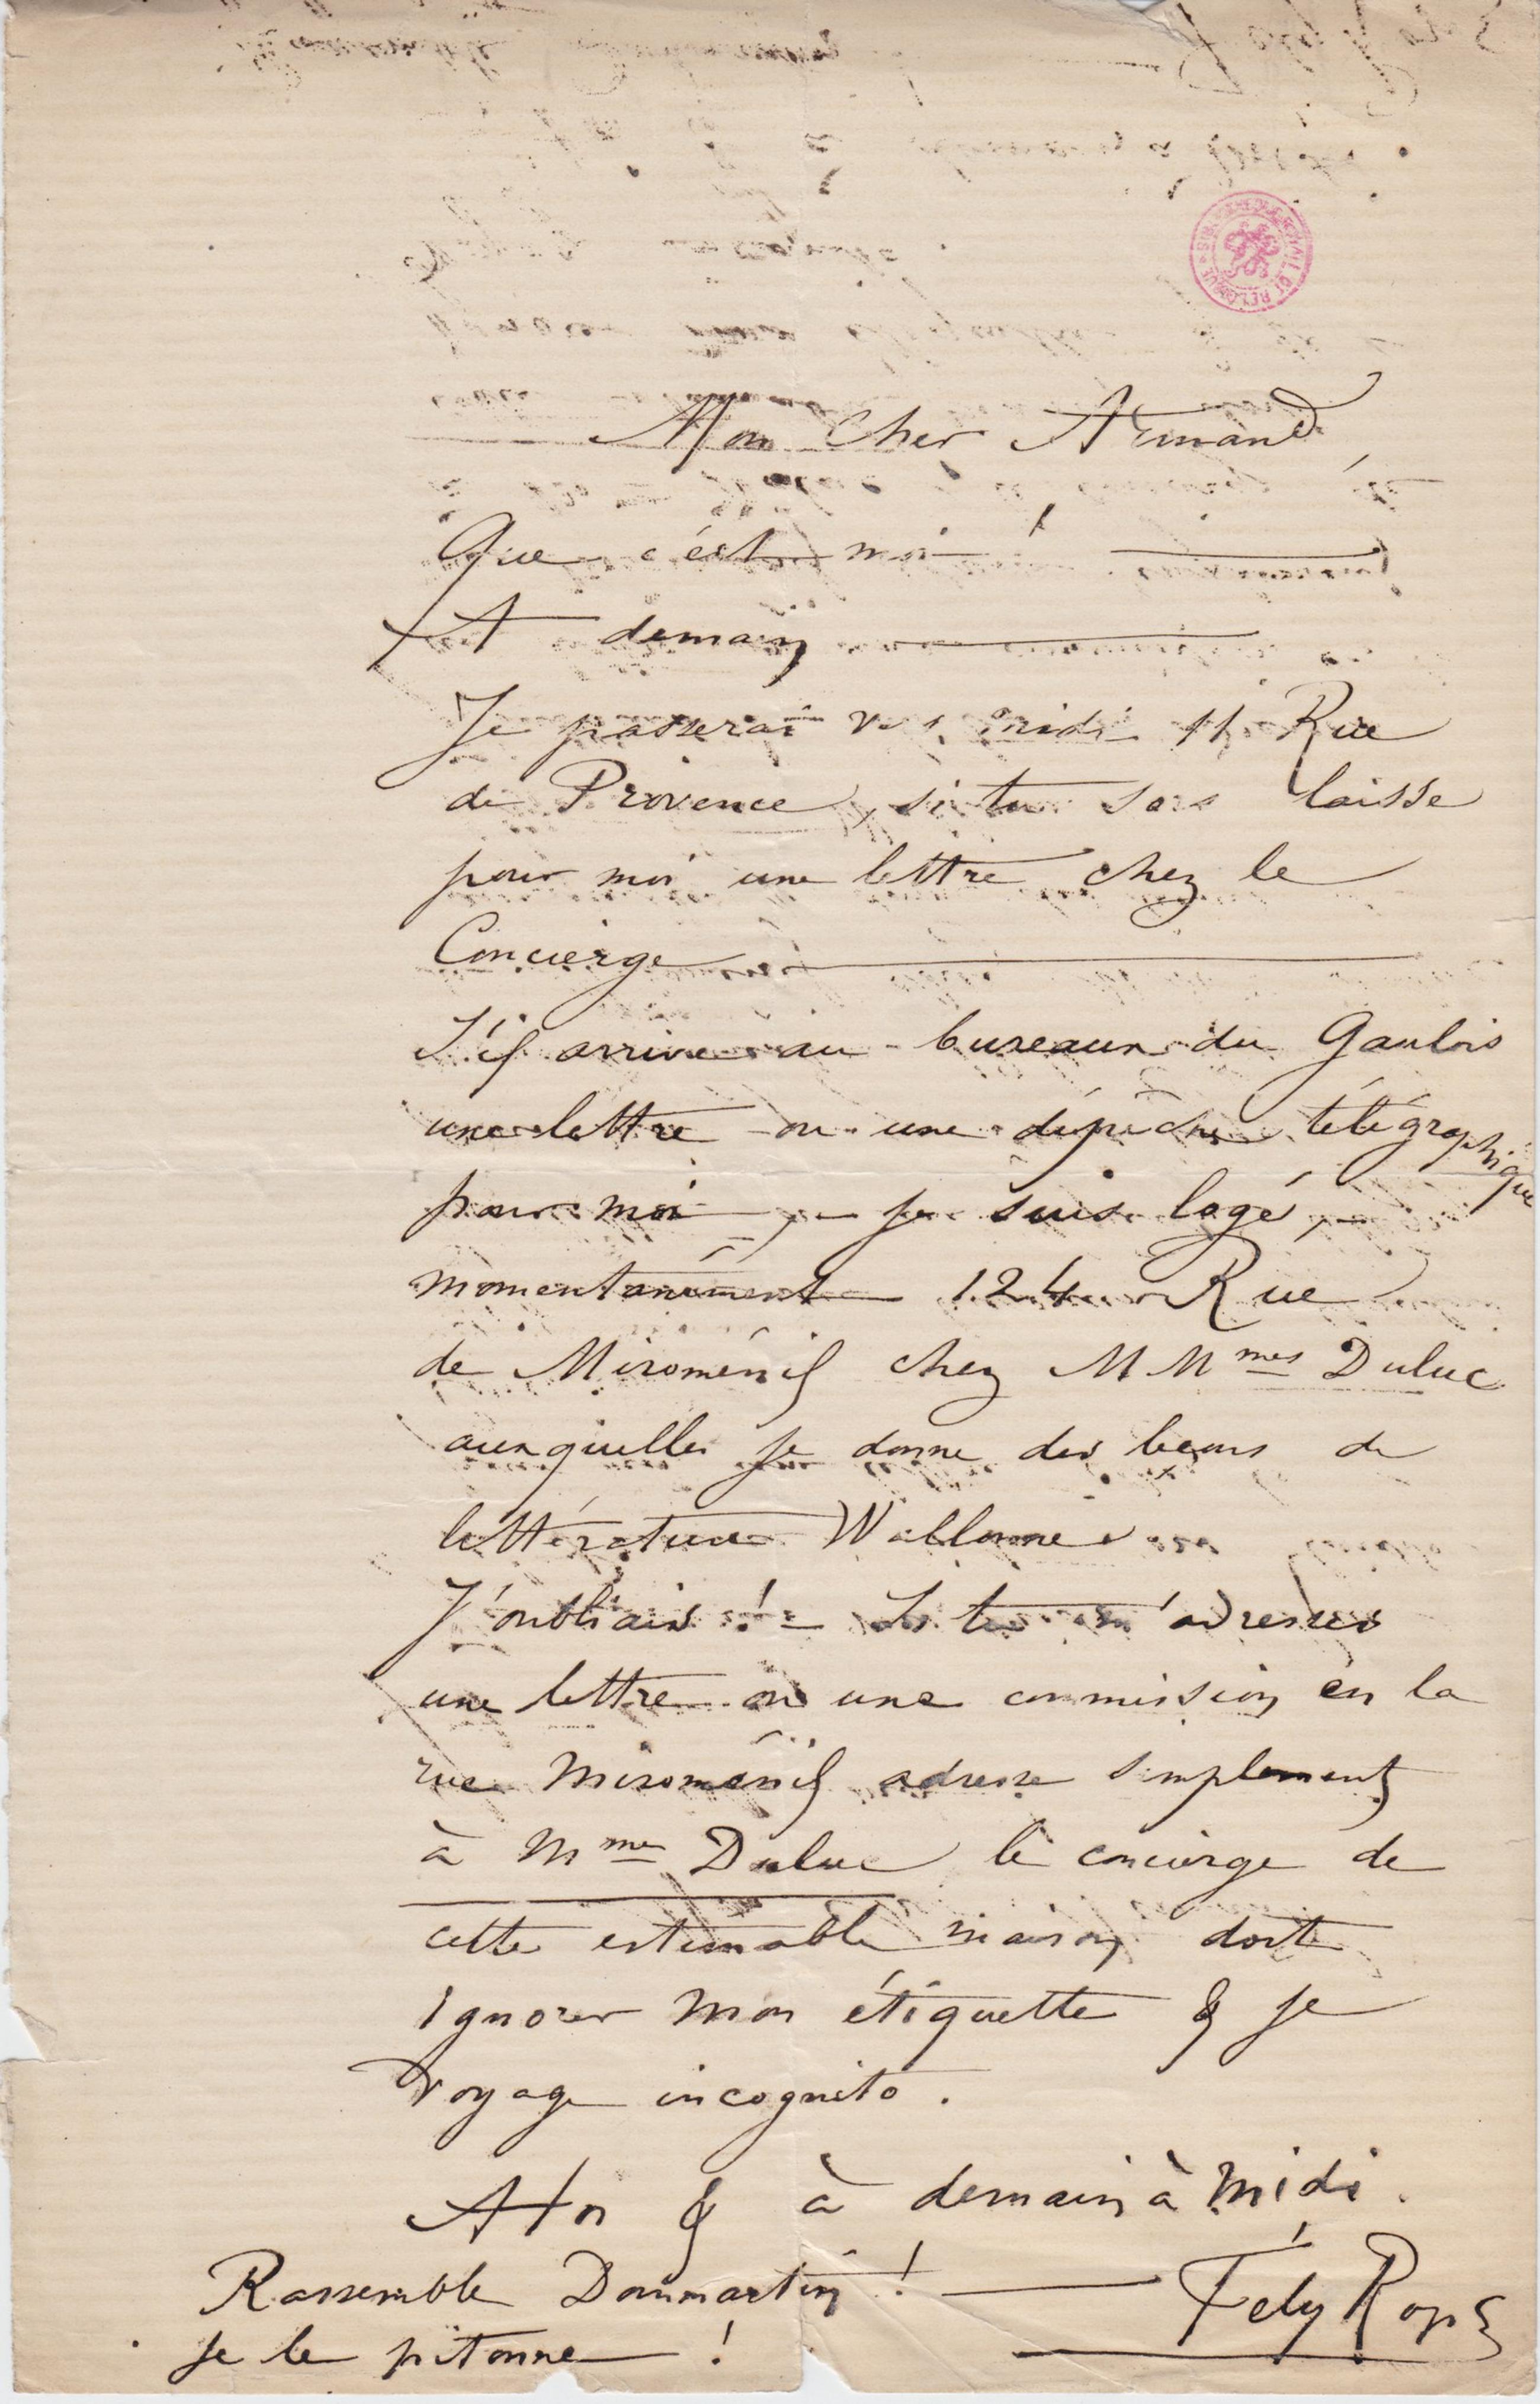 BIBLIOTHEQUE ROYALE DE BELGIQUE
Mon Cher Armand,
Que c'est moi !
A demain
Je passerai vers midi 11 Rue
de Provence, si tu sors laisse
pour moi une lettre chez le
Concierge
S'il arrive au bureaux du Gaulois
une lettre ou une dépêche télégraphique
pour moi, – je suis logé, –
momentanément 124 Rue
de Miroménil chez MMmes Duluc
auxquelles je donne des leçons de
littérature Wallonne.
J'oubliais ! – Si tu m'adresses
une lettre ou une commission en la
rue Miroménil adresse simplement
à Mme Duluc le concierge de
cette estimable maison doit
ignorer mon étiquette & je
voyage incognito.
A toi & à demain à midi.
Rassemble Dommartin ! Fély Rops
je le pitonne !